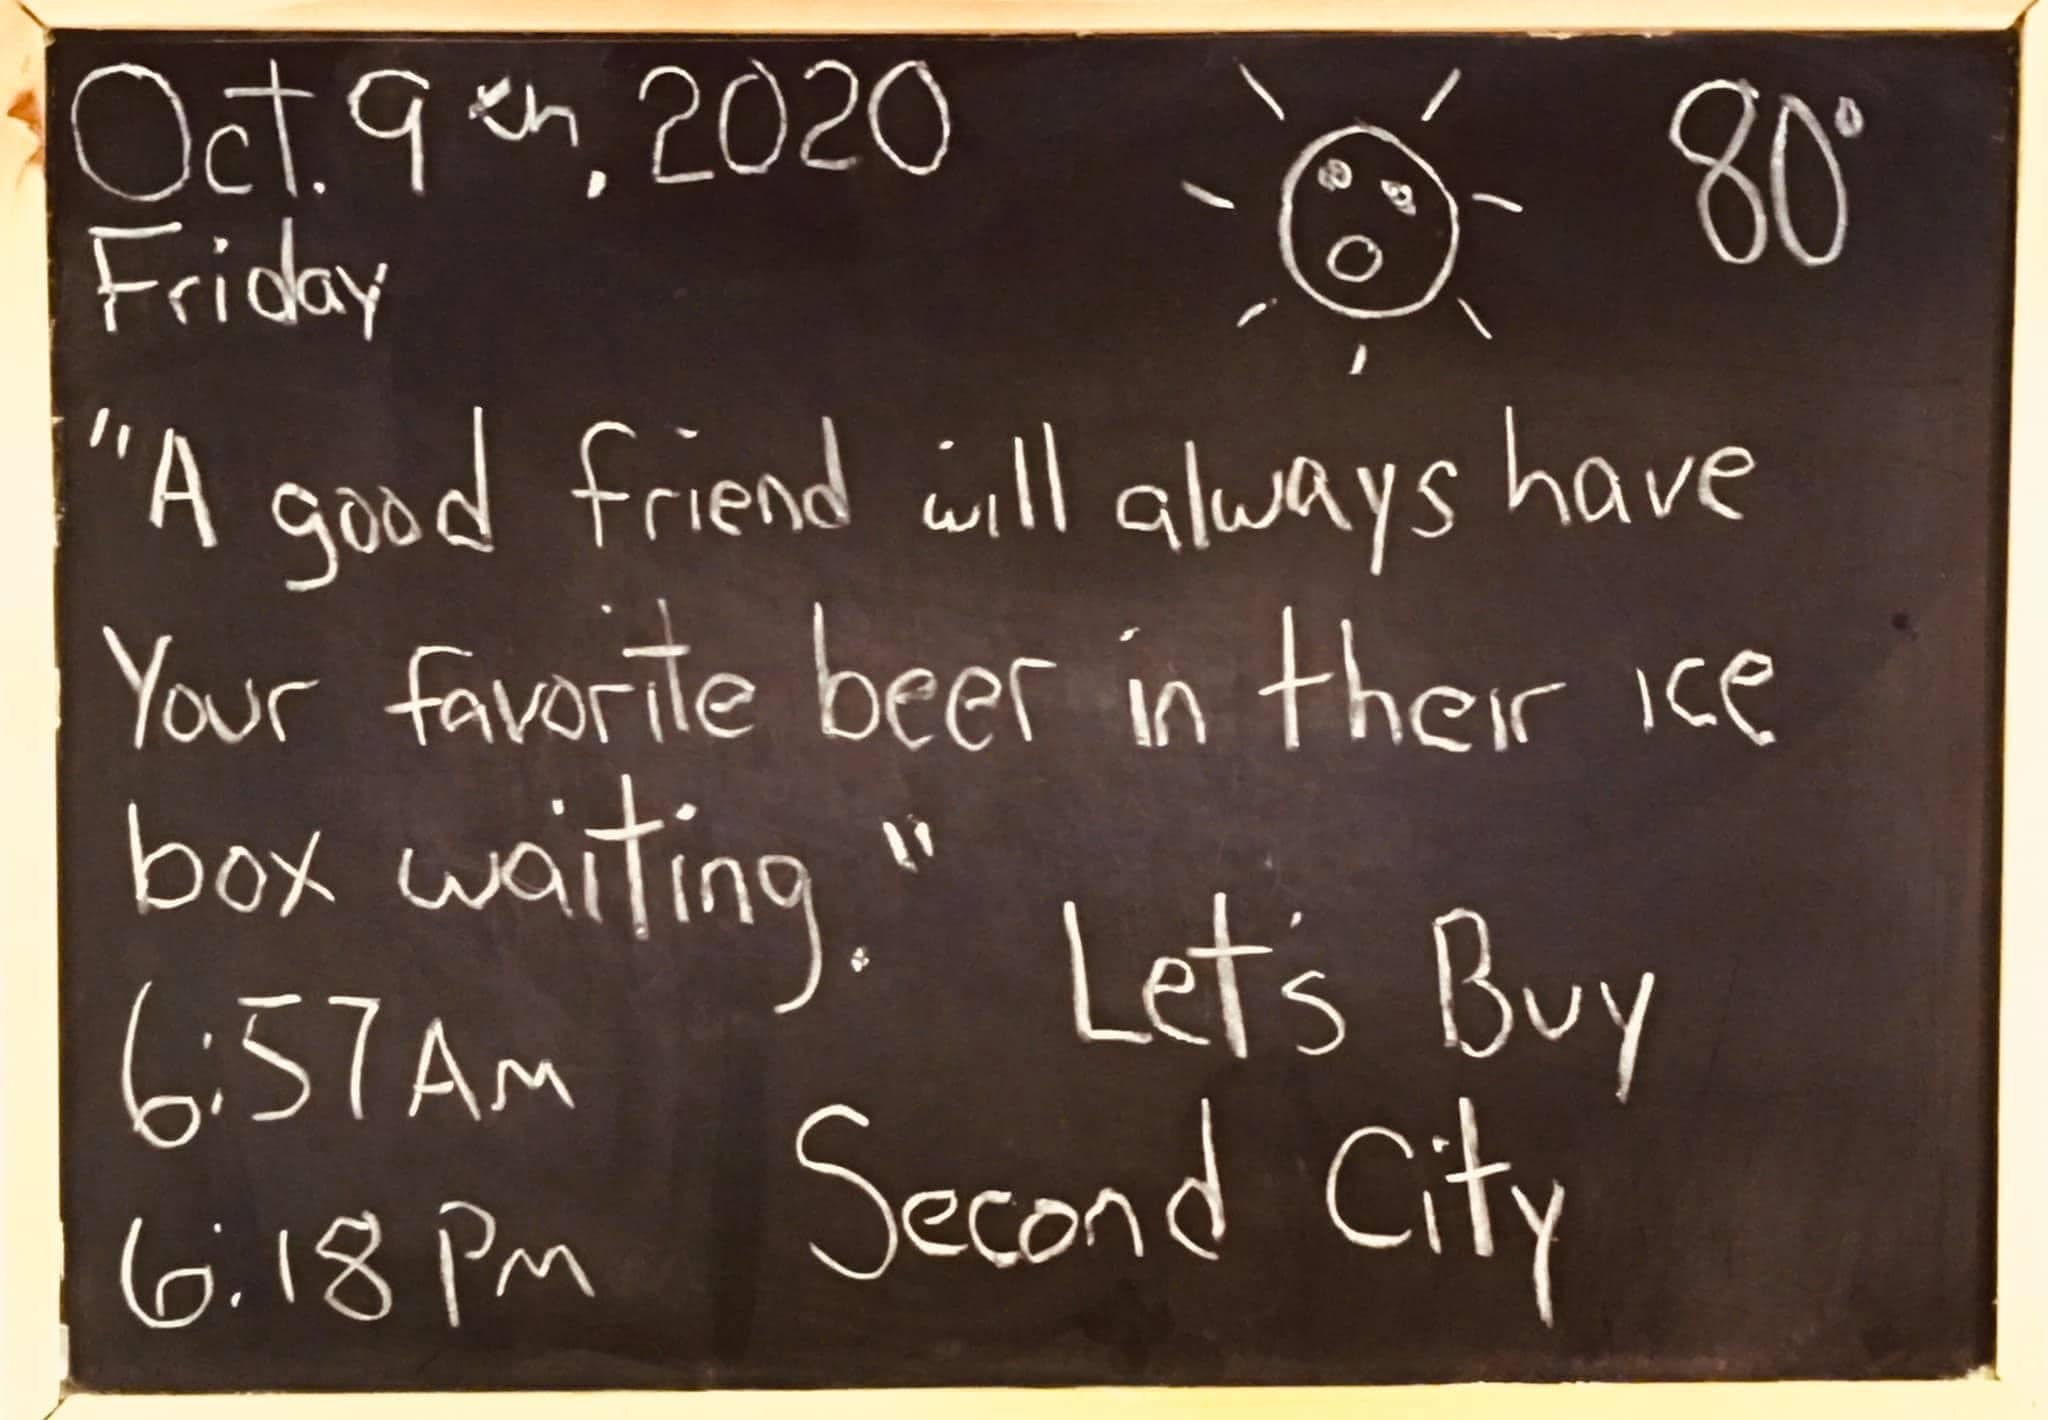 Oct. 9th, 2020
80°
Friday
"A good friend will always have
Your favorite beer in their ice
box waiting."
Let's Buy
6:57 AM
Second City
6:18 PM